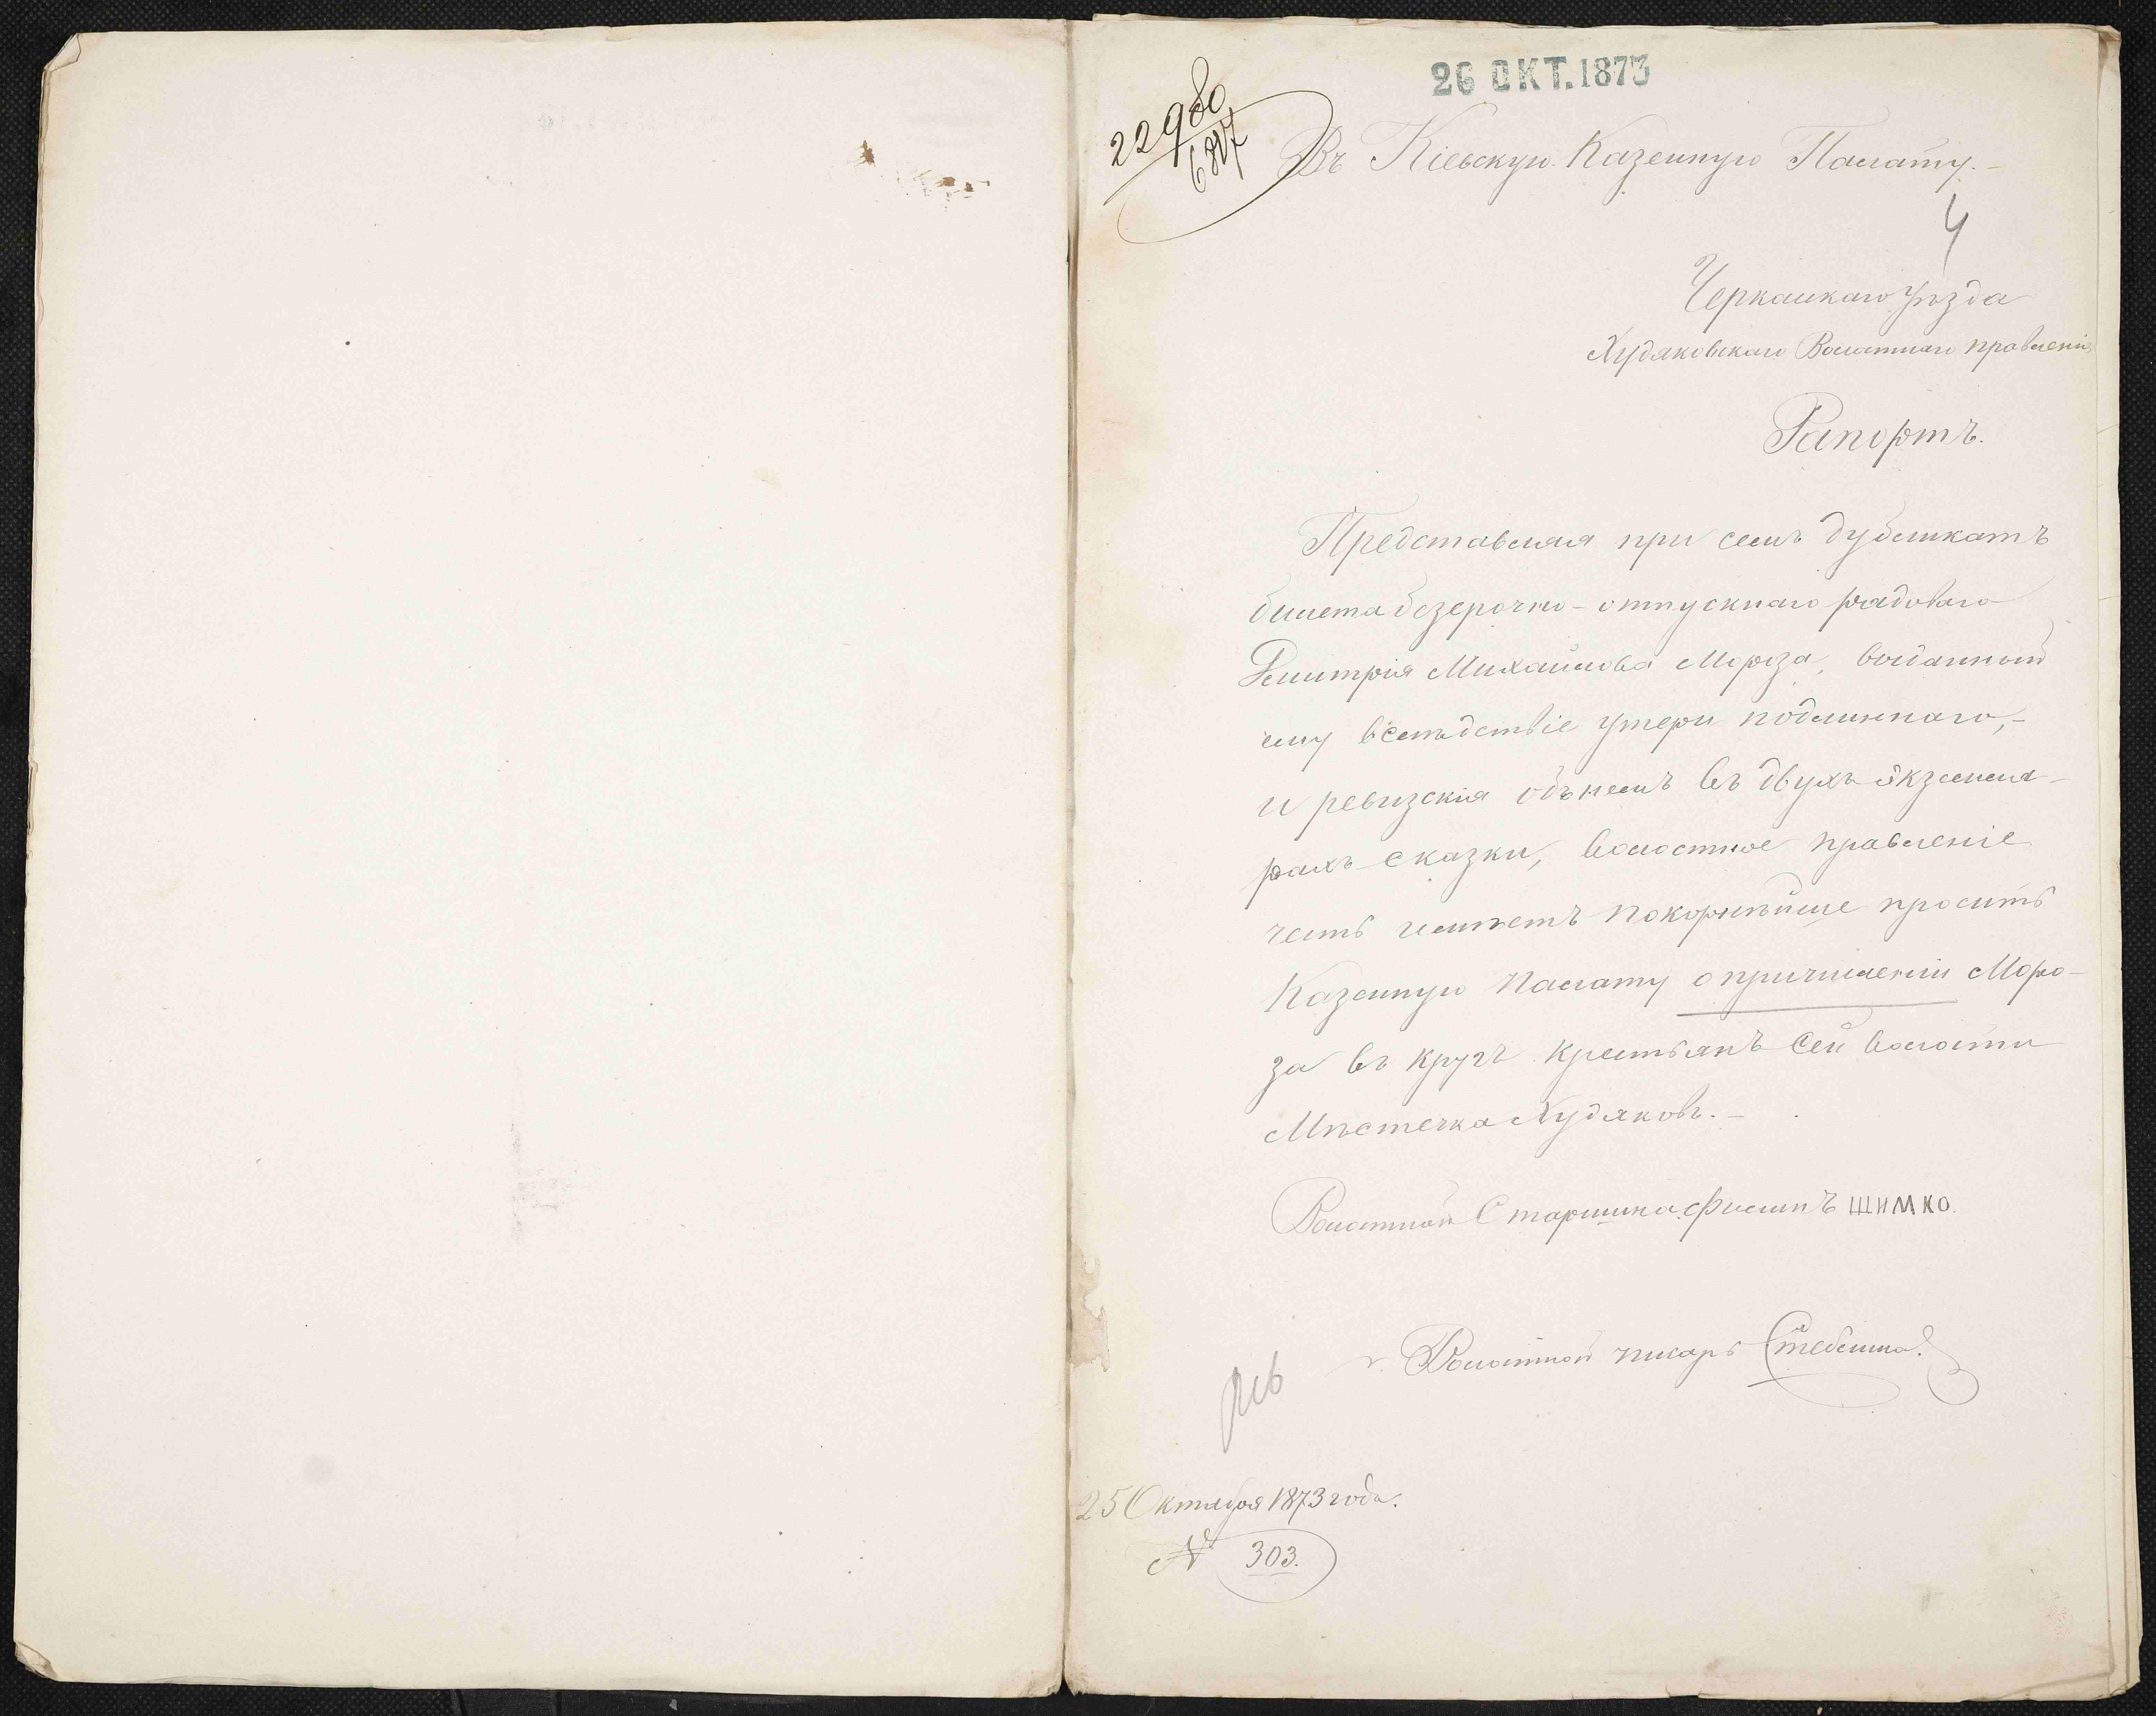 26 ОКТ. 1873
22980
6817
Въ Кіевскую Казенную Палату.-
4
Черкаскаго Уѣзда
Худяковскаго Волостнаго правленія
Рапортъ.
Представляя при семъ дубликатъ
билета безсрочно-отпускнаго рядоваго
Дмитрія Михайлова Мороза, выданный
ему вслѣдствіе утери подлиннаго,-
и ревизскія объ немъ въ двухъ экземпля-
рахъ сказки, волостное правленіе
честь имѣетъ покорнѣйше просить
Казенную Палату о причисленіи Моро-
за въ кругъ крестьянъ сей волости
Мѣстечка Худяковъ.-
Волостной Старшина Филипъ ШИМКО.
Волостной писарь Стеблина.
25 Октября 1873 года.
№ 303.